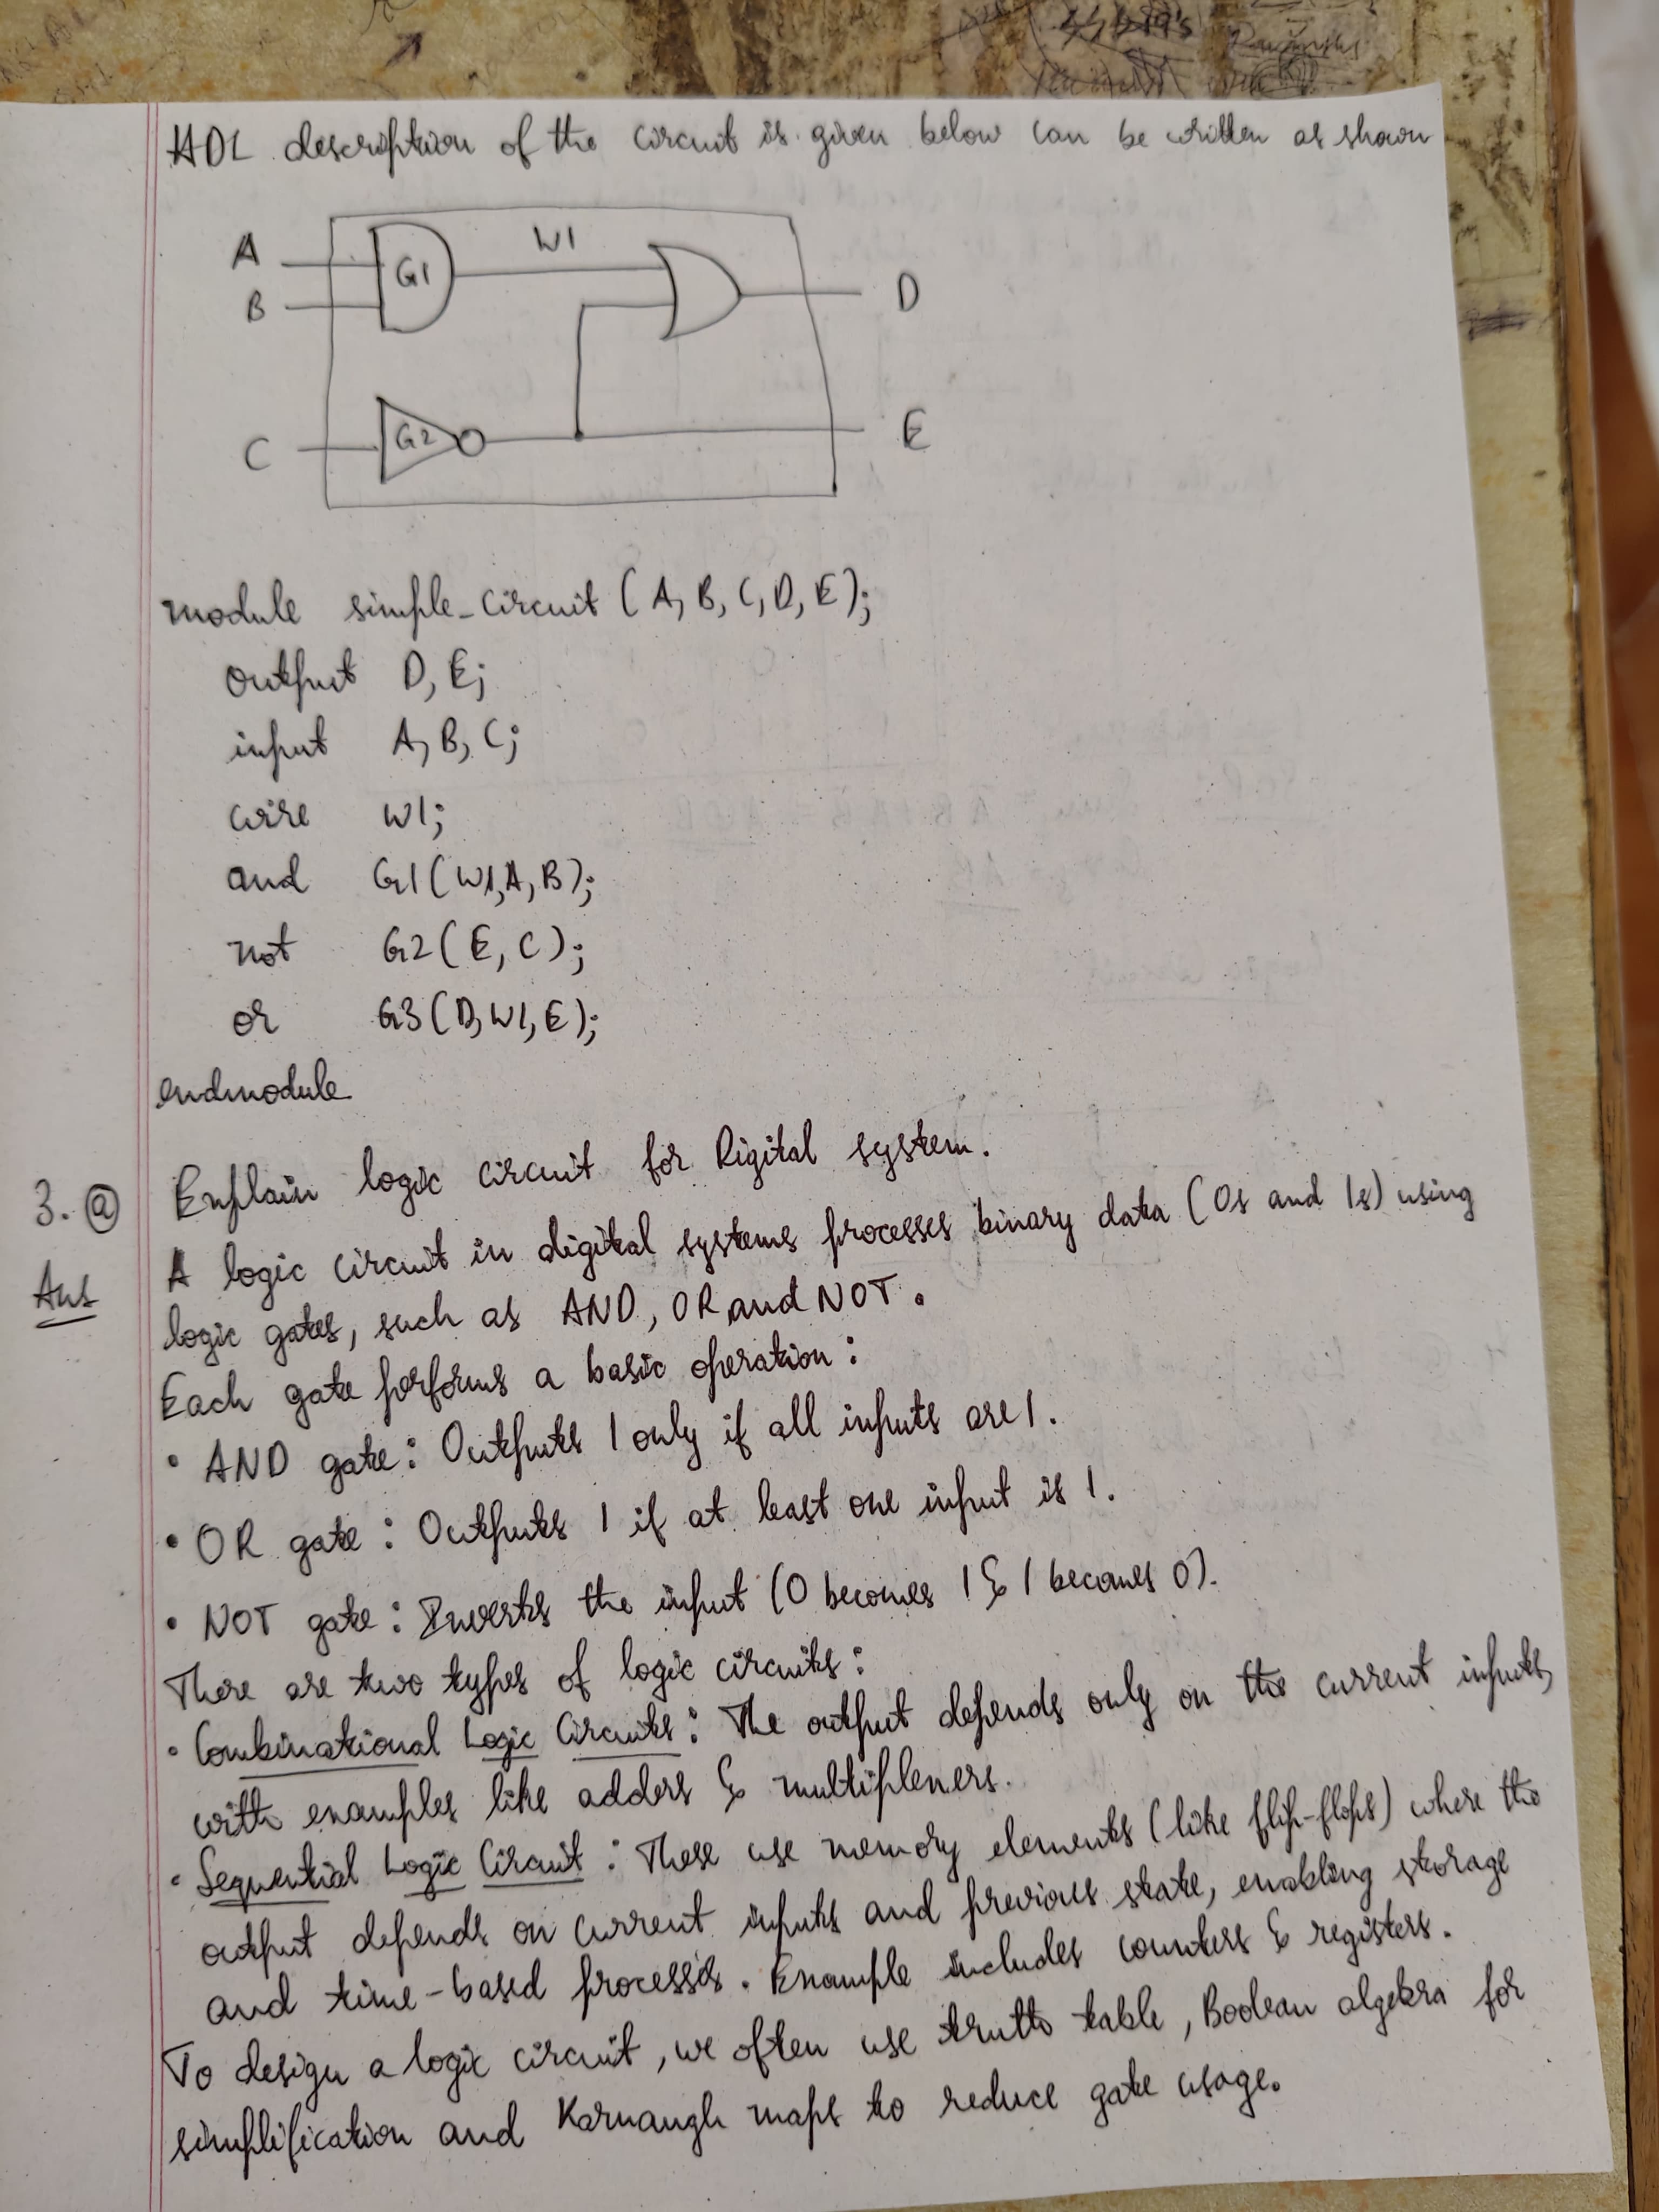 HDL description of the circuit is given below can be written as shown
A
B
G1
W1
D
C
G2
E
module simple-circuit (A, B, C, D, E);
output D, E;
input A, B, C;
wire W1;
and G1(W1,A,B);
not G2(E, C);
or G3(D,W1,E);
endmodule
3. (a) Explain logic circuit for Digital system.
Ans A logic circuit in digital systems processes binary data (0s and 1s) using
logic gates, such as AND, OR and NOT.
Each gate performs a basic operation:
• AND gate: Outputs 1 only if all inputs are 1.
• OR gate: Outputs 1 if at least one input is 1.
• NOT gate: Inverts the input (0 becomes 1 & 1 becomes 0).
There are two types of logic circuits:
• Combinational Logic Circuits: The output depends only on the current inputs,
with examples like adders & multiplexers.
• Sequential Logic Circuit: These use memory elements (like flip-flops) where the
output depends on current inputs and previous state, enabling storage
and time-based process. Example includes counters & registers.
To design a logic circuit, we often use truth table, Boolean algebra for
simplification and Karnaugh maps to reduce gate usage.